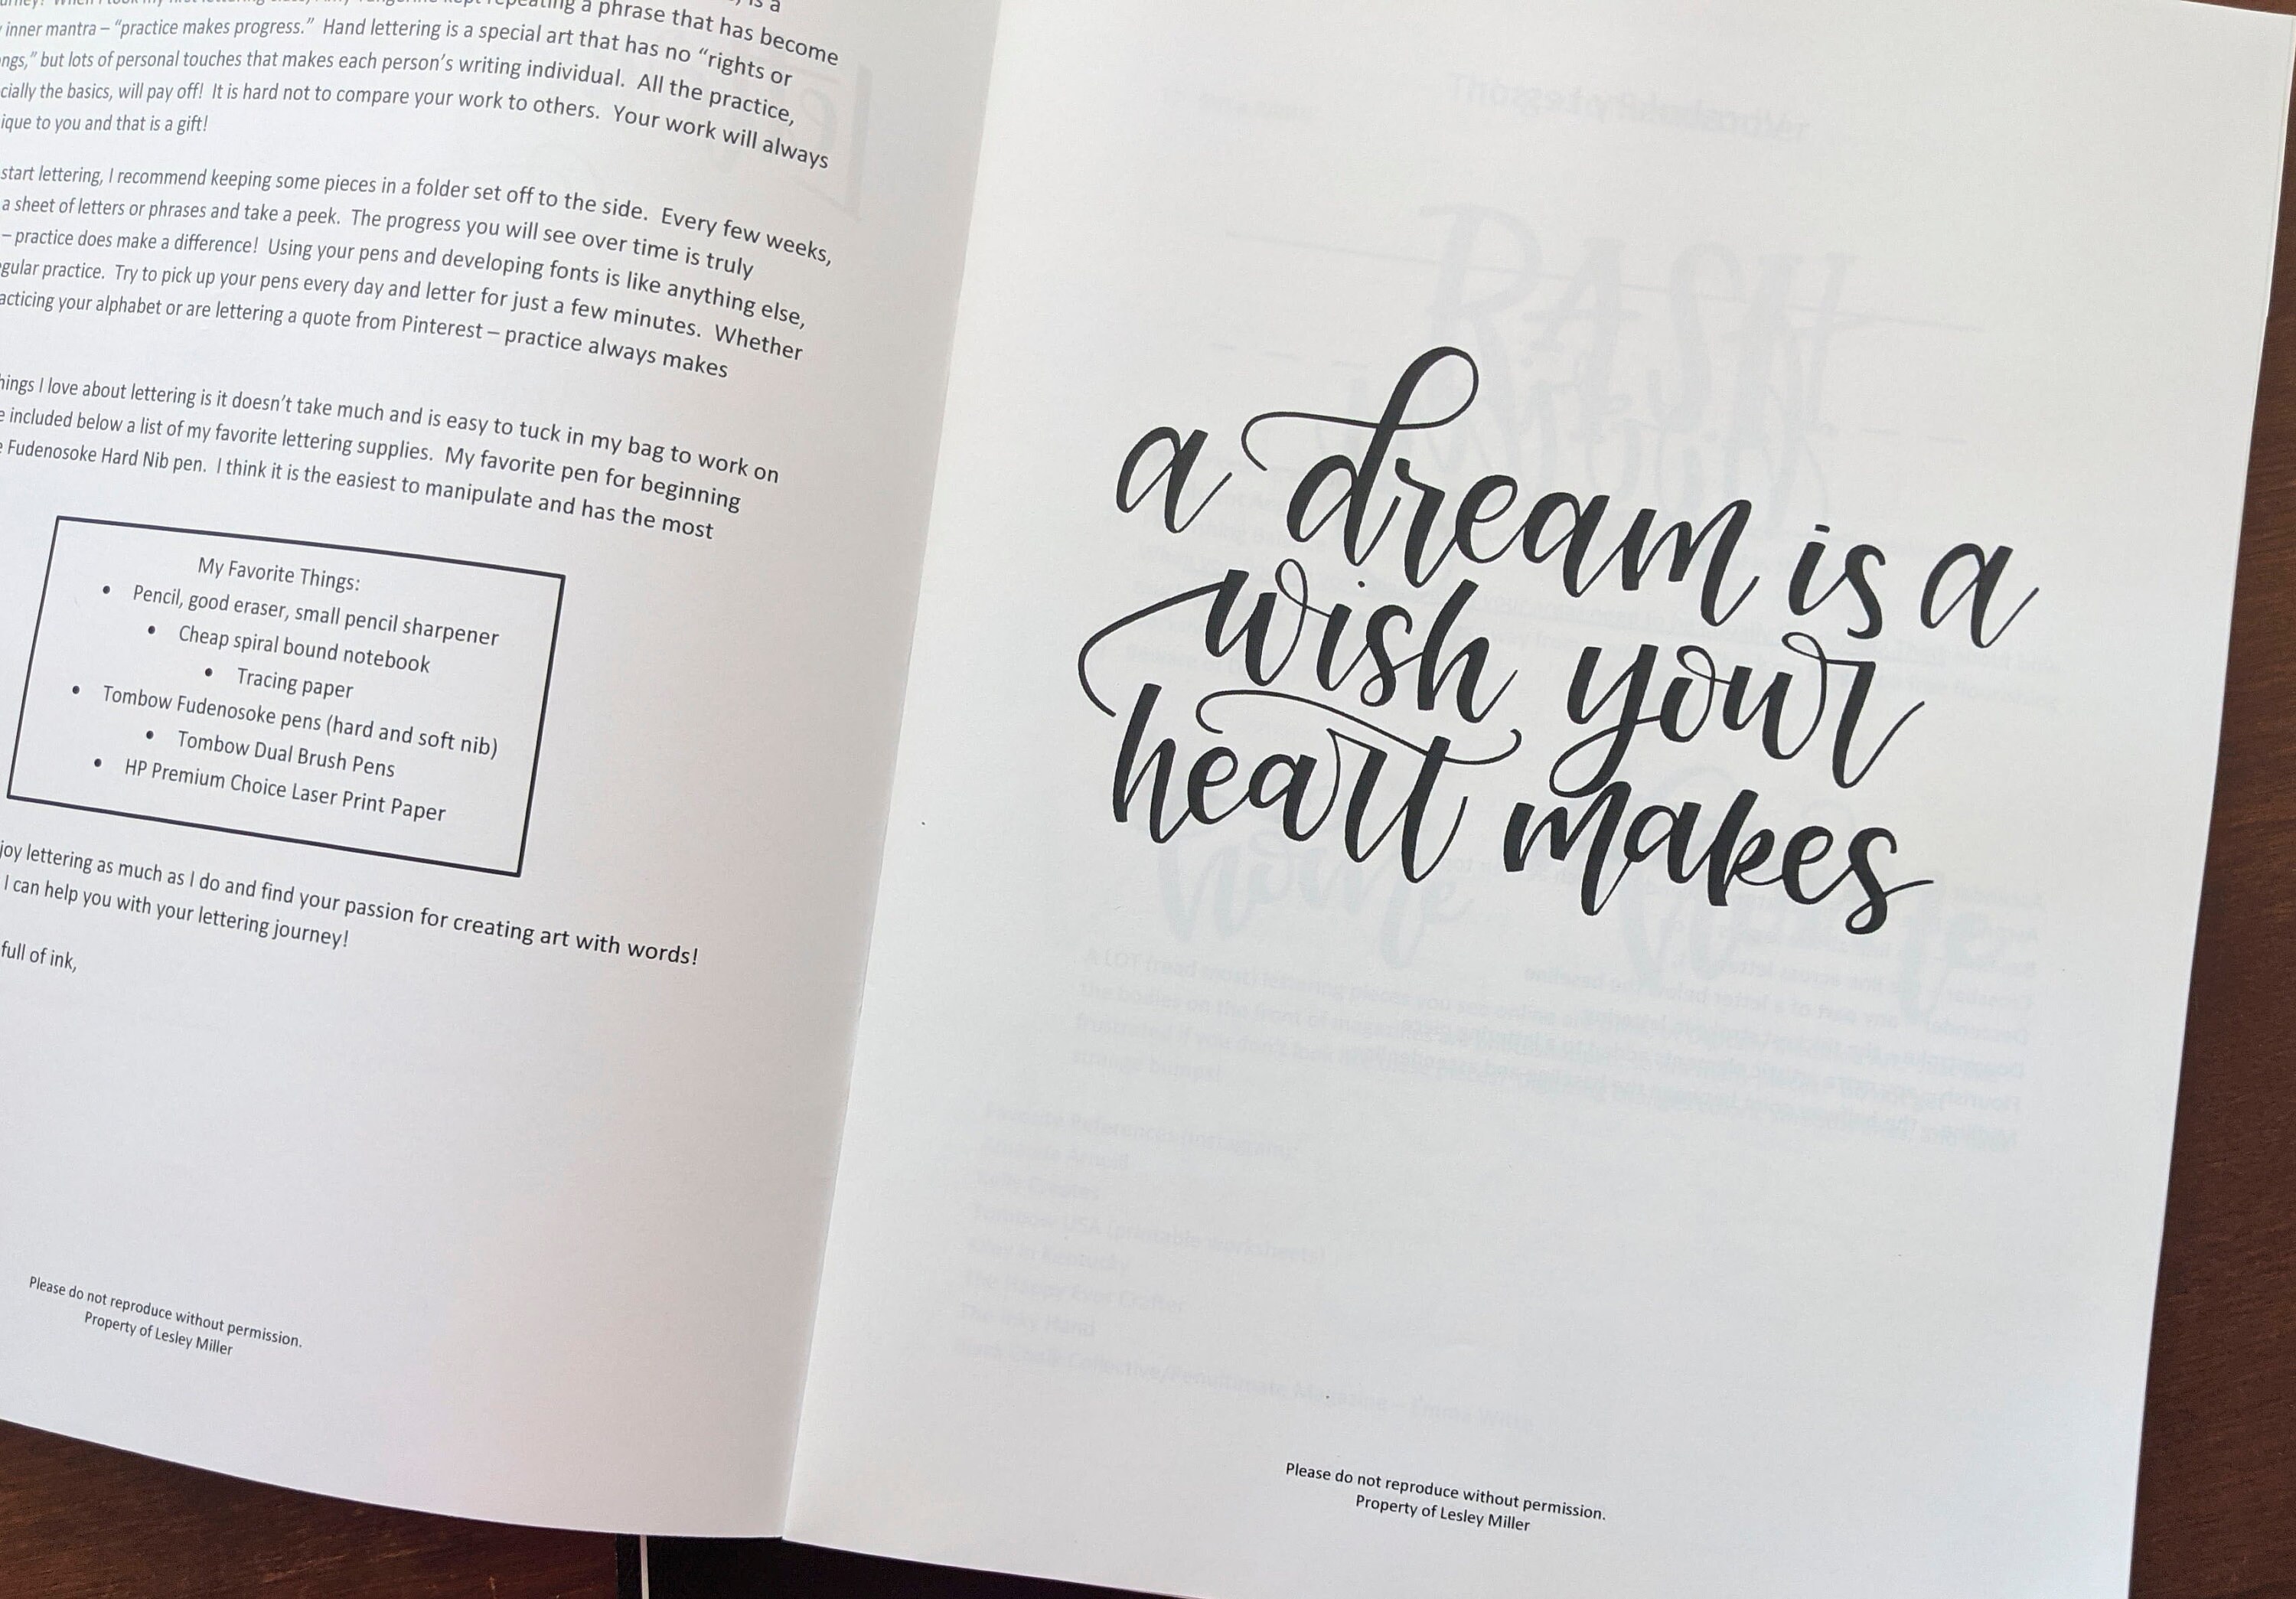 repeating a phrase that has become
inner mantra – “practice makes progress.” Hand lettering is a special art that has no “rights or
but lots of personal touches that makes each person’s writing individual. All the practice,
the basics, will pay off! It is hard not to compare your work to others. Your work will always
to you and that is a gift!
start lettering, I recommend keeping some pieces in a folder set off to the side. Every few weeks,
a sheet of letters or phrases and take a peek. The progress you will see over time is truly
– practice does make a difference! Using your pens and developing fonts is like anything else,
practice. Try to pick up your pens every day and letter for just a few minutes. Whether
your alphabet or are lettering a quote from Pinterest – practice always makes
I love about lettering is it doesn’t take much and is easy to tuck in my bag to work on
included below a list of my favorite lettering supplies. My favorite pen for beginning
Fudenosoke Hard Nib pen. I think it is the easiest to manipulate and has the most
My Favorite Things:
• Pencil, good eraser, small pencil sharpener
• Cheap spiral bound notebook
• Tracing paper
• Tombow Fudenosoke pens (hard and soft nib)
• Tombow Dual Brush Pens
• HP Premium Choice Laser Print Paper
lettering as much as I do and find your passion for creating art with words!
I can help you with your lettering journey!
full of ink,
Please do not reproduce without permission.
Property of Lesley Miller
a dream is a
wish your
heart makes
Please do not reproduce without permission.
Property of Lesley Miller